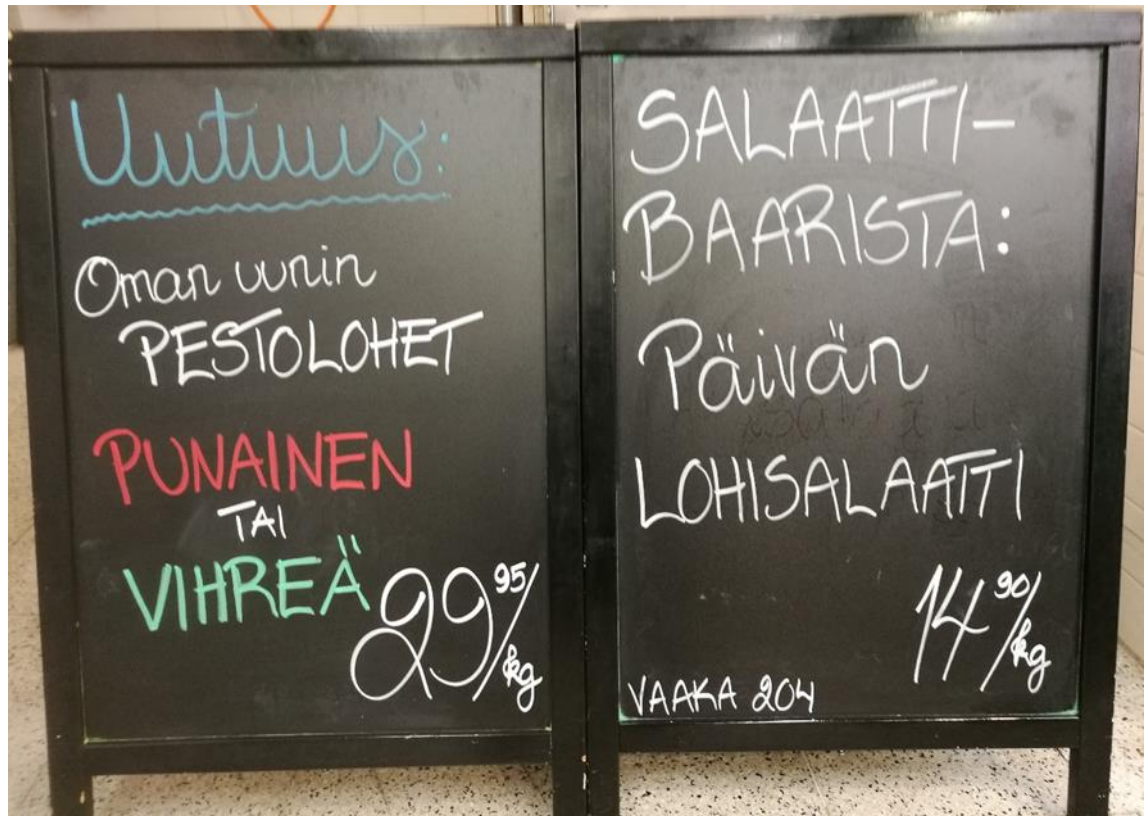 Uutuus:
Oman uunin
PESTOLOHET
PUNAINEN
TAI
VIHREÄ
29 95/kg
SALAATTI-
BAARISTA:
Päivän
LOHISALAATTI
14 90/kg
VAAKA 204